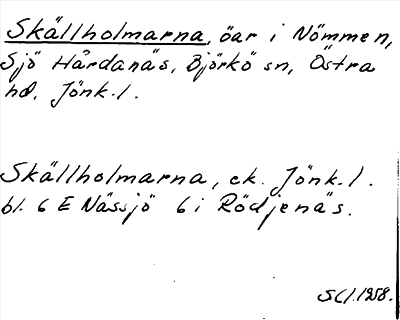 Skällholmarna, öar i Nömmen,
Sjö Hårdanäs, Björkö sn, Östra
hd. Jönk.l.
Skällholmarna, ek. Jönk.l.
bl. 6 E Nässjö 6 i Rödjenäs.
1958.